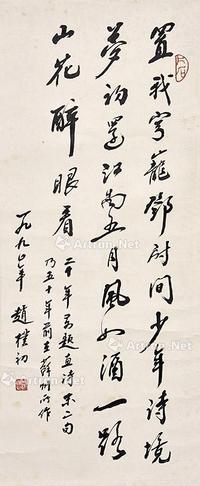 置我穹窿邓尉间少年诗境
梦初还江南五月风如酒一路
山花醉眼看
二十年前题画诗末二句
乃五十年前在苏州所作
一九八五年
赵朴初